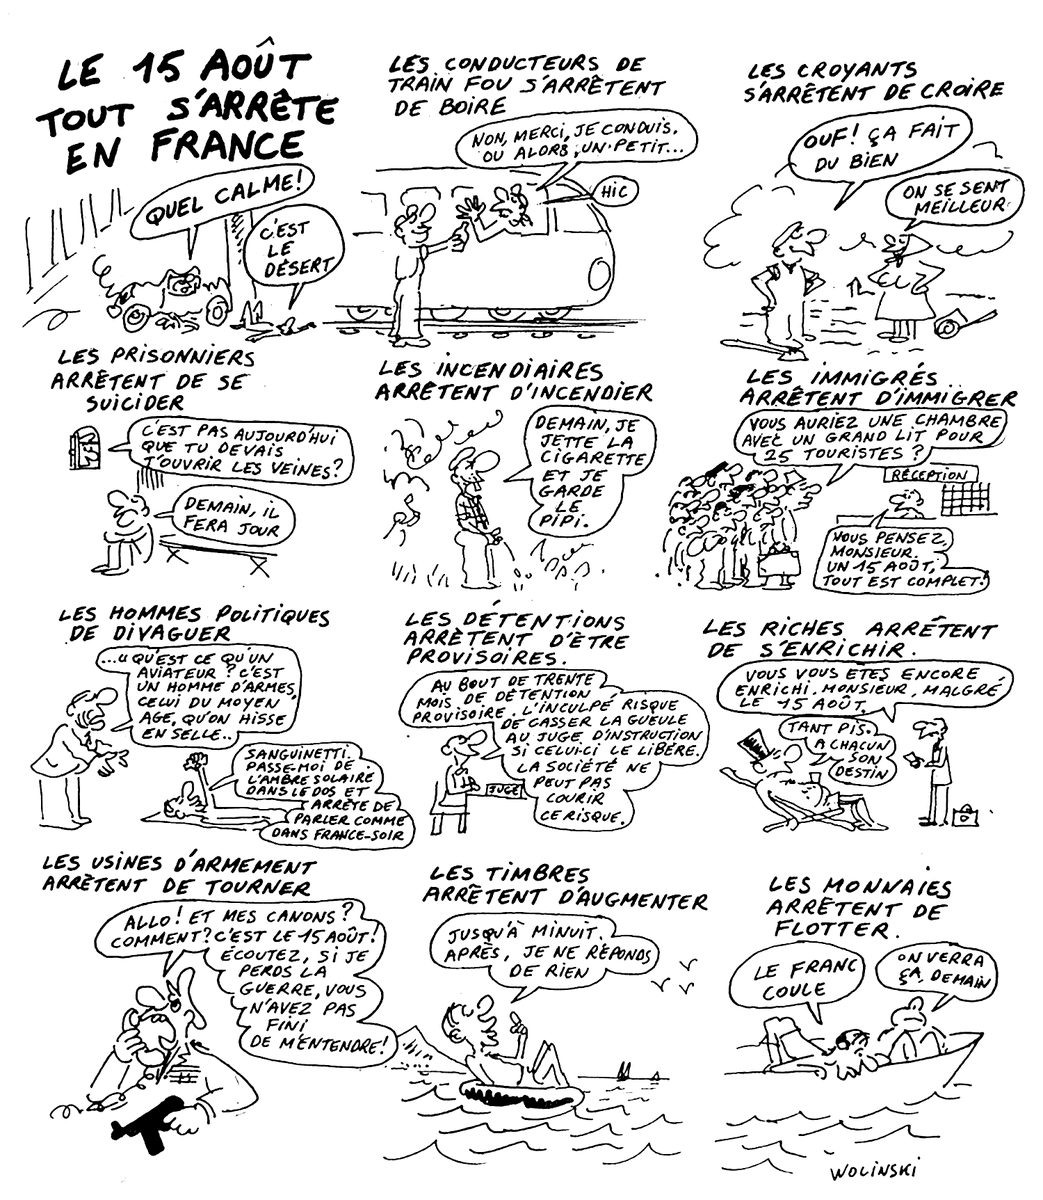 LE 15 AOÛT
TOUT S'ARRÊTE
EN FRANCE
QUEL CALME!
C'EST
LE
DÉSERT
LES CONDUCTEURS DE
TRAIN FOU S'ARRÊTENT
DE BOIRE
NON, MERCI, JE CONDUIS.
OU ALORS, UN PETIT...
HIC
LES CROYANTS
S'ARRÊTENT DE CROIRE
OUF! ÇA FAIT
DU BIEN
ON SE SENT
MEILLEUR
LES PRISONNIERS
ARRÊTENT DE SE
SUICIDER
C'EST PAS AUJOURD'HUI
QUE TU DEVAIS
T'OUVRIR LES VEINES?
DEMAIN, IL
FERA JOUR
LES INCENDIAIRES
ARRÊTENT D'INCENDIER
DEMAIN, JE
JETTE LA
CIGARETTE
ET JE
GARDE
LE
PIPI.
LES IMMIGRÉS
ARRÊTENT D'IMMIGRER
VOUS AURIEZ UNE CHAMBRE
AVEC UN GRAND LIT POUR
25 TOURISTES?
RÉCEPTION
VOUS PENSEZ,
MONSIEUR.
UN 15 AOÛT,
TOUT EST COMPLET!
LES HOMMES POLITIQUES
DE DIVAGUER
...QU'EST CE QU'UN
AVIATEUR? C'EST
UN HOMME D'ARMES,
CELUI DU MOYEN
AGE, QU'ON HISSE
EN SELLE..
SANGUINETTI.
PASSE-MOI DE
L'AMBRE SOLAIRE
DANS LE DOS ET
ARRÊTE DE
PARLER COMME
DANS FRANCE-SOIR
LES DÉTENTIONS
ARRÊTENT D'ÊTRE
PROVISOIRES.
AU BOUT DE TRENTE
MOIS DE DÉTENTION
PROVISOIRE, L'INCULPÉ RISQUE
DE CASSER LA GUEULE
AU JUGE D'INSTRUCTION
SI CELUI-CI LE LIBÈRE.
LA SOCIÉTÉ NE
PEUT PAS
COURIR
CE RISQUE.
JUGE
LES RICHES ARRÊTENT
DE S'ENRICHIR.
VOUS VOUS ETES ENCORE
ENRICHI, MONSIEUR, MALGRÉ
LE 15 AOÛT.
TANT PIS.
A CHACUN
SON
DESTIN
LES USINES D'ARMEMENT
ARRÊTENT DE TOURNER
ALLO! ET MES CANONS?
COMMENT? C'EST LE 15 AOÛT!
ÉCOUTEZ, SI JE
PERDS LA
GUERRE, VOUS
N'AVEZ PAS
FINI
DE M'ENTENDRE!
LES TIMBRES
ARRÊTENT D'AUGMENTER
JUSQU'À MINUIT.
APRÈS, JE NE RÉPONDS
DE RIEN
LES MONNAIES
ARRÊTENT DE
FLOTTER.
LE FRANC
COULE
ON VERRA
ÇA, DEMAIN
WOLINSKI